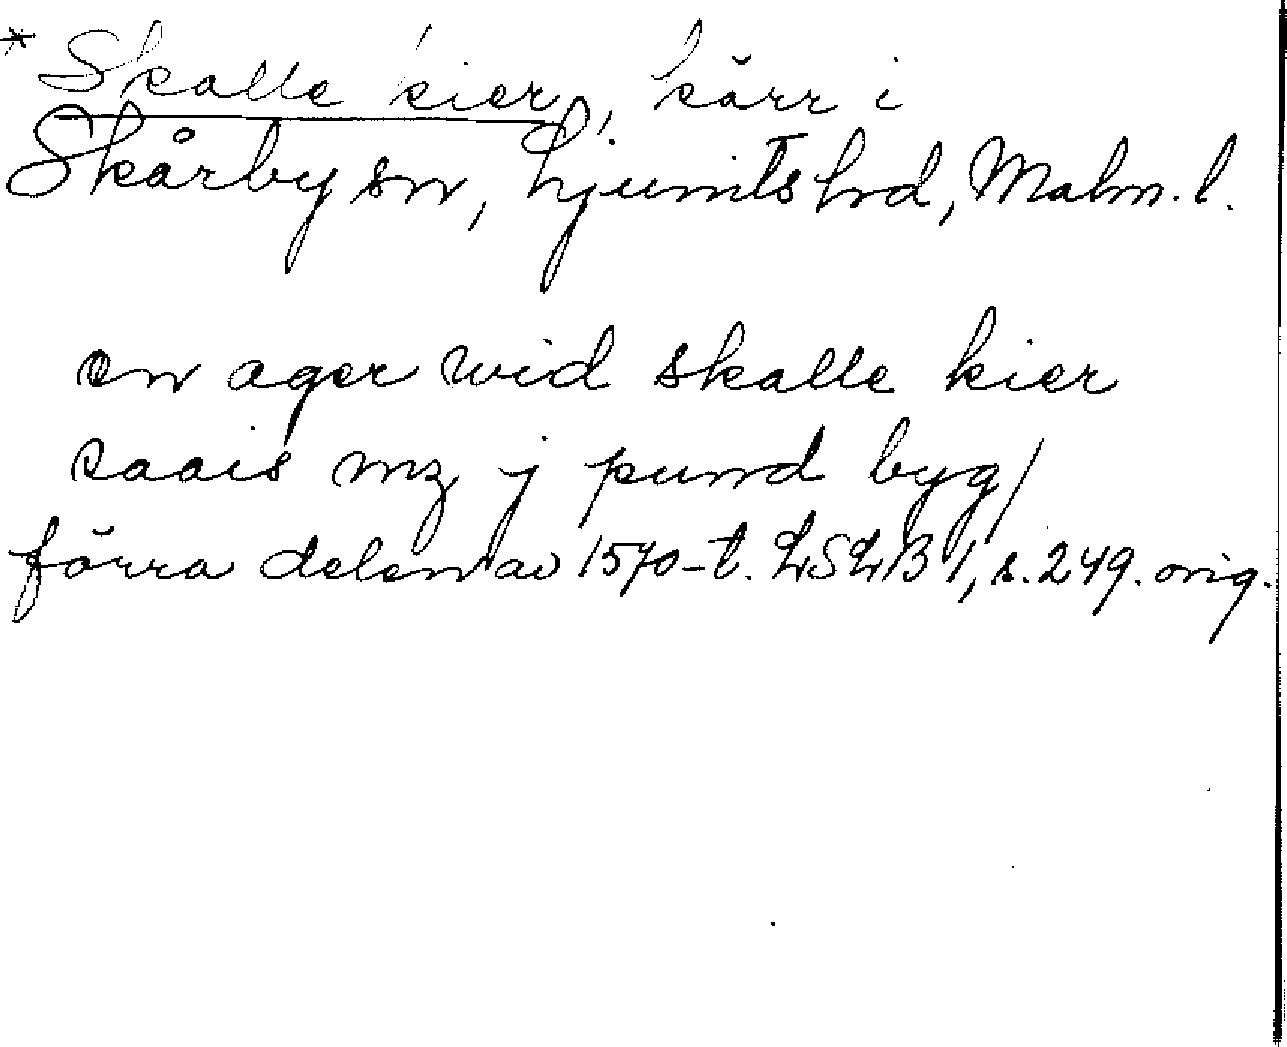 * Skalle kier, kärr i
Skårby sn, Ljunits hd, Malm. l.
en ager wid skalle kier
saais mz j pund byg/
förra delen av 1570-t. LSLB 1, s. 249. orig.